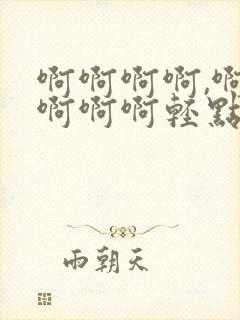 啊啊啊啊,啊
啊啊啊轻點
雨朝天